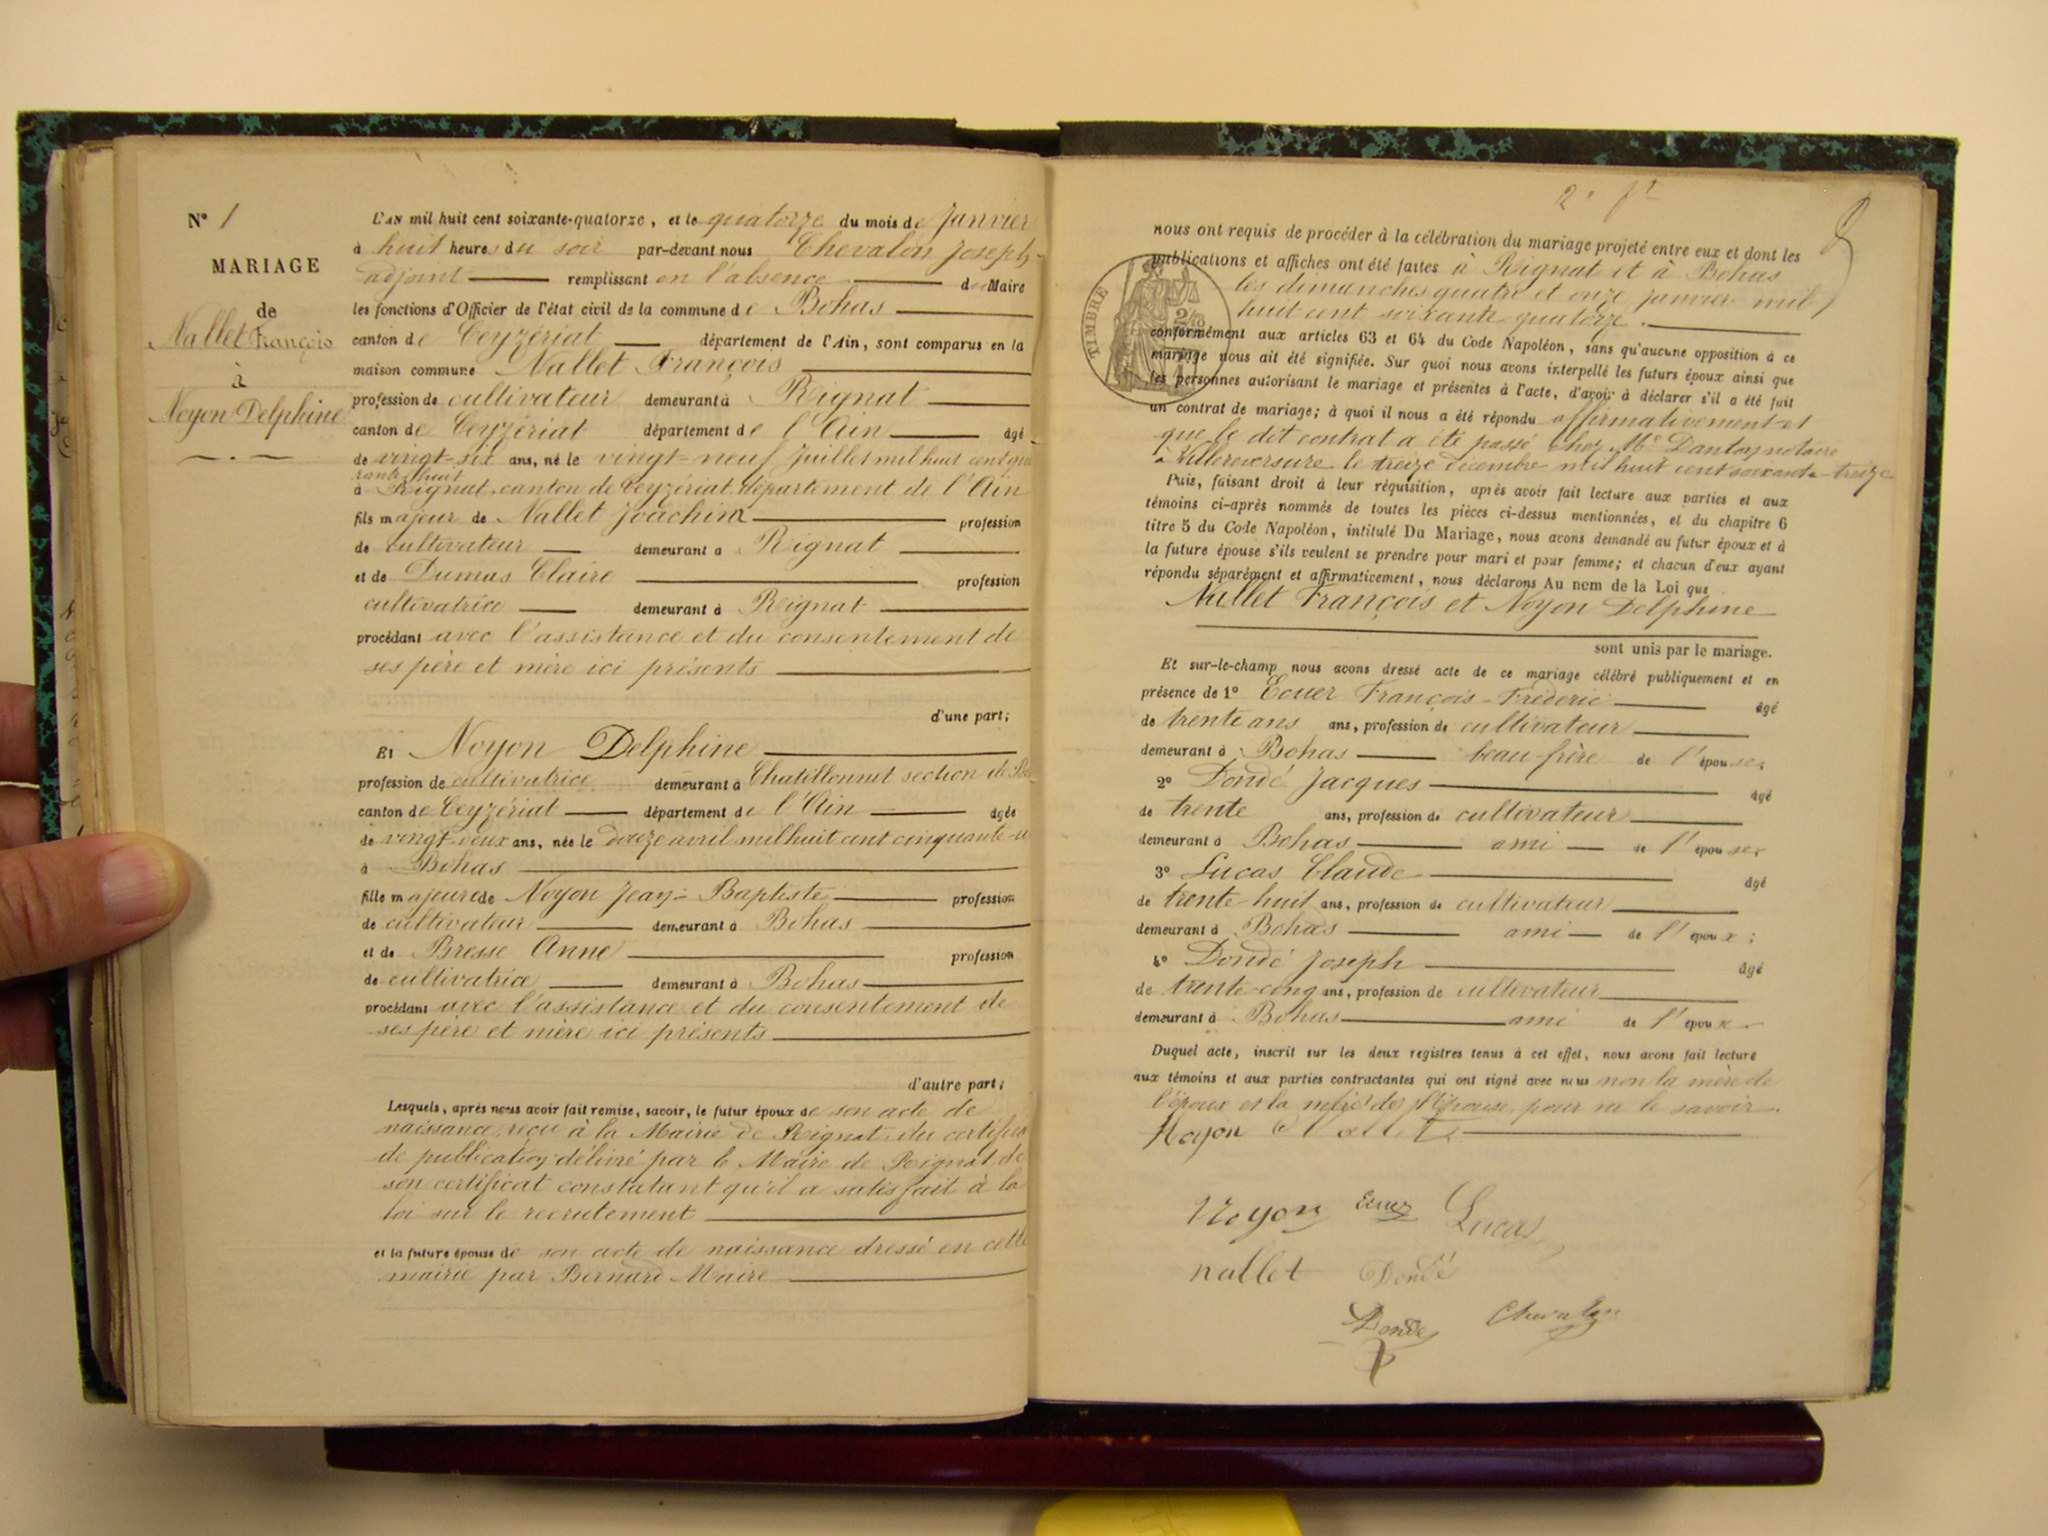 N° 1
MARIAGE
de
Nallet François
à
Noyon Delphine
L'AN mil huit cent soixante-quatorze, et le quatorze du mois de Janvier
à huit heures du soir par-devant nous Chevalon Joseph
adjoint remplissant en l'absence du Maire
les fonctions d'Officier de l'état civil de la commune de Bohas
canton de Ceyzériat département de l'Ain, sont comparus en la
maison commune Nallet François
profession de cultivateur demeurant à Rignat
canton de Ceyzériat département de l'Ain âgé
de vingt-six ans, né le vingt-neuf juillet mil huit cent qua
rante huit
à Rignat, canton de Ceyzériat, département de l'Ain
fils majeur de Nallet Joachim profession
de cultivateur demeurant à Rignat
et de Dumas Claire profession
cultivatrice demeurant à Rignat
procédant avec l'assistance et du consentement de
ses père et mère ici présents
d'une part;
Et Noyon Delphine
profession de cultivatrice demeurant à Chatillonnet section de Bo
canton de Ceyzériat département de l'Ain âgée
de vingt-deux ans, née le douze avril mil huit cent cinquante-u
à Bohas
fille majeure de Noyon Jean-Baptiste profession
de cultivateur demeurant à Bohas
et de Bresse Anne profession
de cultivatrice demeurant à Bohas
procédant avec l'assistance et du consentement de
ses père et mère ici présents
d'autre part;
Lesquels, après nous avoir fait remise, savoir, le futur époux de son acte de
naissance, reçu à la Mairie de Rignat, du certificat
de publication délivré par le Maire de Rignat, de
son certificat constatant qu'il a satisfait à la
loi sur le recrutement
et la future épouse de son acte de naissance dressé en cette
mairie par Bernard Maire
2e ft
nous ont requis de procéder à la célébration du mariage projeté entre eux et dont les
publications et affiches ont été faites à Rignat et à Bohas
les dimanches quatre et onze janvier mil
huit cent soixante quatorze.
TIMBRE
conformément aux articles 63 et 64 du Code Napoléon, sans qu'aucune opposition à ce
mariage nous ait été signifiée. Sur quoi nous avons interpellé les futurs époux ainsi que
les personnes autorisant le mariage et présentes à l'acte, d'avoir à déclarer s'il a été fait
un contrat de mariage; à quoi il nous a été répondu affirmativement et
que le dit contrat a été passé chez Me Danton notaire
à Villereversure le treize décembre mil huit cent soixante-treize
Puis, faisant droit à leur réquisition, après avoir fait lecture aux parties et aux
témoins ci-après nommés de toutes les pièces ci-dessus mentionnées, et du chapitre 6
titre 5 du Code Napoléon, intitulé Du Mariage, nous avons demandé au futur époux et à
la future épouse s'ils veulent se prendre pour mari et pour femme; et chacun d'eux ayant
répondu séparément et affirmativement, nous déclarons Au nom de la Loi que
Nallet François et Noyon Delphine
sont unis par le mariage.
Et sur-le-champ nous avons dressé acte de ce mariage célébré publiquement et en
présence de 1° Ecuer François-Fréderic âgé
de trente ans ans, profession de cultivateur
demeurant à Bohas beau-frère de l'épouse;
2° Dondé Jacques âgé
de trente ans, profession de cultivateur
demeurant à Bohas ami de l'épouse;
3° Lucas Claude âgé
de trente-huit ans, profession de cultivateur
demeurant à Bohas ami de l'époux;
4° Dondé Joseph âgé
de trente-cinq ans, profession de cultivateur
demeurant à Bohas ami de l'époux.
Duquel acte, inscrit sur les deux registres tenus à cet effet, nous avons fait lecture
aux témoins et aux parties contractantes qui ont signé avec nous non la mère de
l'époux et la mère de l'épouse pour ne le savoir.
Noyon Nallet
Noyon Ecuer Lucas
nallet Dondé
Dondé Chevalon